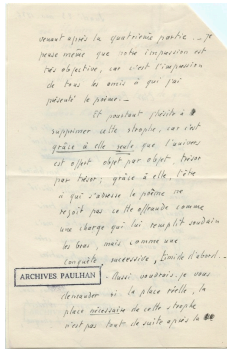 venant après la quatrième partie.. _ je
pense même que notre impression est
très objective, car c'est l'impression
de tous les amis à qui j'ai
présenté le poème. _
Et pourtant j'hésite à
supprimer cette strophe, car c'est
grâce à elle seule que l'univers
est offert objet par objet, trésor
par trésor ; grâce à elle, l'être
à qui s'adresse le poème ne
reçoit pas cette offrande comme
une charge qui lui remplit soudain
les bras, mais comme une
conquête successive, timide d'abord. _
ARCHIVES PAULHAN
_ Aussi voudrais-je vous
demander si la place réelle, la
place nécessaire de cette strophe
n'est pas tout de suite après la